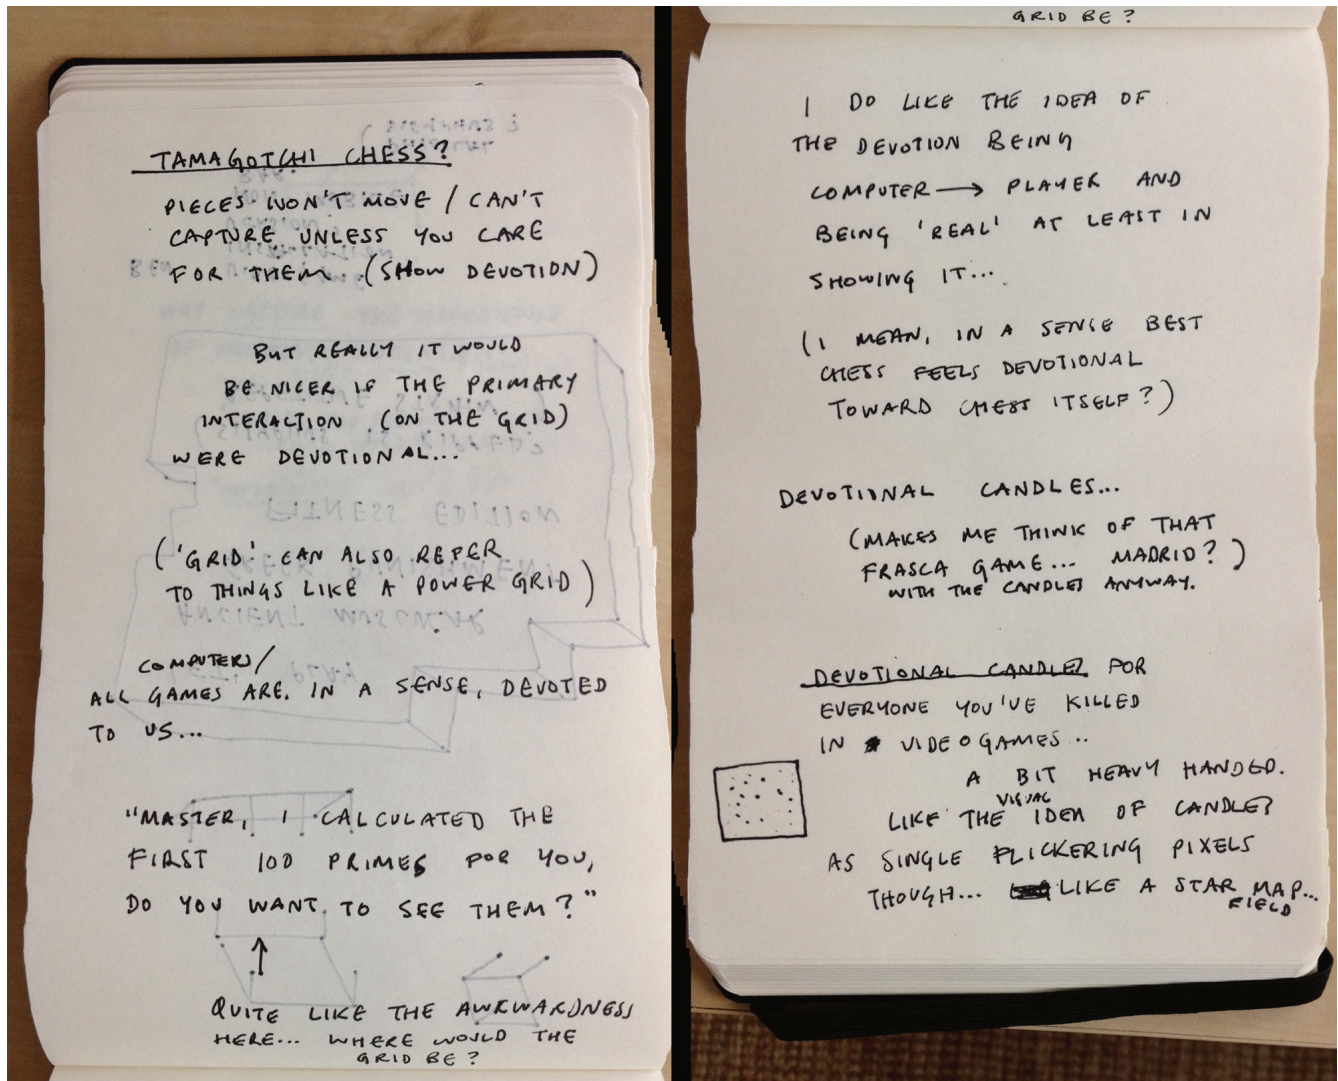 TAMAGOTCHI CHESS?
PIECES WON'T MOVE / CAN'T
CAPTURE UNLESS YOU CARE
FOR THEM... (SHOW DEVOTION)
BUT REALLY IT WOULD
BE NICER IF THE PRIMARY
INTERACTION (ON THE GRID)
WERE DEVOTIONAL...
('GRID' CAN ALSO REFER
TO THINGS LIKE A POWER GRID)
COMPUTERS/
ALL GAMES ARE, IN A SENSE, DEVOTED
TO US...
"MASTER, I CALCULATED THE
FIRST 100 PRIMES FOR YOU,
DO YOU WANT TO SEE THEM?"
QUITE LIKE THE AWKWARDNESS
HERE... WHERE WOULD THE
GRID BE?
GRID BE?
I DO LIKE THE IDEA OF
THE DEVOTION BEING
COMPUTER → PLAYER AND
BEING 'REAL' AT LEAST IN
SHOWING IT...
(I MEAN, IN A SENSE BEST
CHESS FEELS DEVOTIONAL
TOWARD CHESS ITSELF?)
DEVOTIONAL CANDLES...
(MAKES ME THINK OF THAT
FRASCA GAME... MADRID?)
WITH THE CANDLES ANYWAY.
DEVOTIONAL CANDLES FOR
EVERYONE YOU'VE KILLED
IN VIDEOGAMES...
A BIT HEAVY HANDED.
VISUAL
LIKE THE IDEA OF CANDLES
AS SINGLE FLICKERING PIXELS
THOUGH... LIKE A STAR MAP...
FIELD